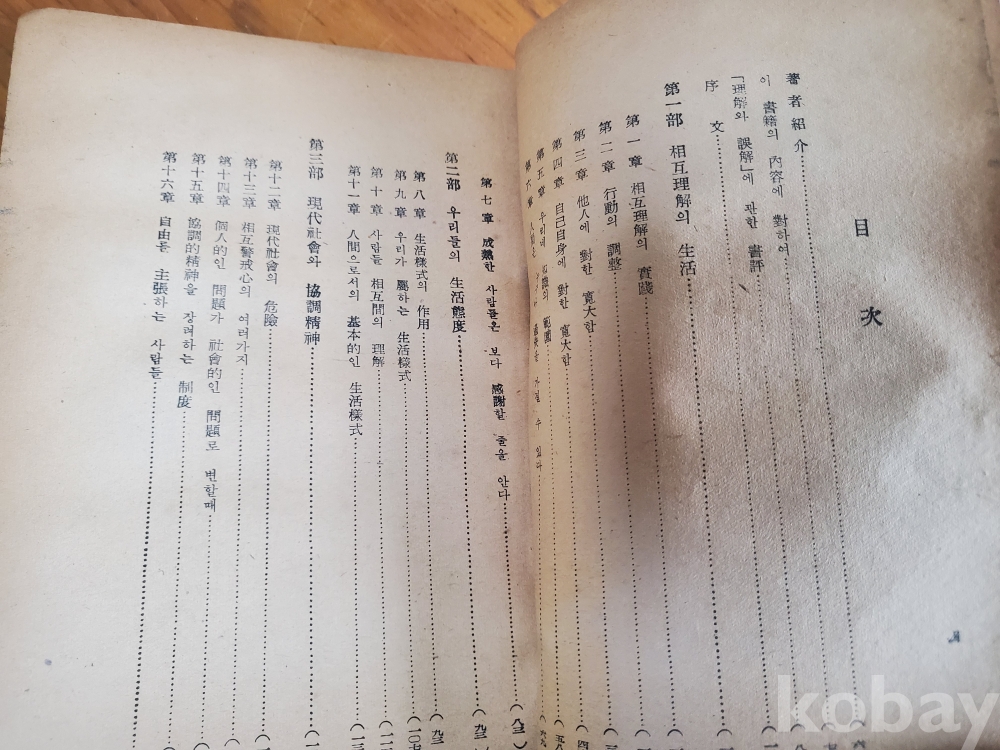 目次
著者紹介
이 書籍의 內容에 對하여
「理解와 誤解」에 관한 書評
序文
第一部 相互理解의 生活
第一章 相互理解의 實踐
第二章 行動의 調整
第三章 他人에 對한 寬大함
第四章 自己自身에 對한 寬大함
第五章 우리네 의 範圍
第六章 人間은 를 가질 수 있다
第七章 成熟한 사람들은 보다 感謝할 줄을 안다
第二部 우리들의 生活態度
第八章 生活樣式의 作用
第九章 우리가 屬하는 生活樣式
第十章 사람들 相互間의 理解
第十一章 人間으로서의 基本的인 生活樣式
第三部 現代社會와 協調精神
第十二章 現代社會의 危險
第十三章 相互警戒心의 여러가지
第十四章 個人的인 問題가 社會的인 問題로 변할때
第十五章 協調的精神을 장려하는 制度
第十六章 自由를 主張하는 사람들
kobay